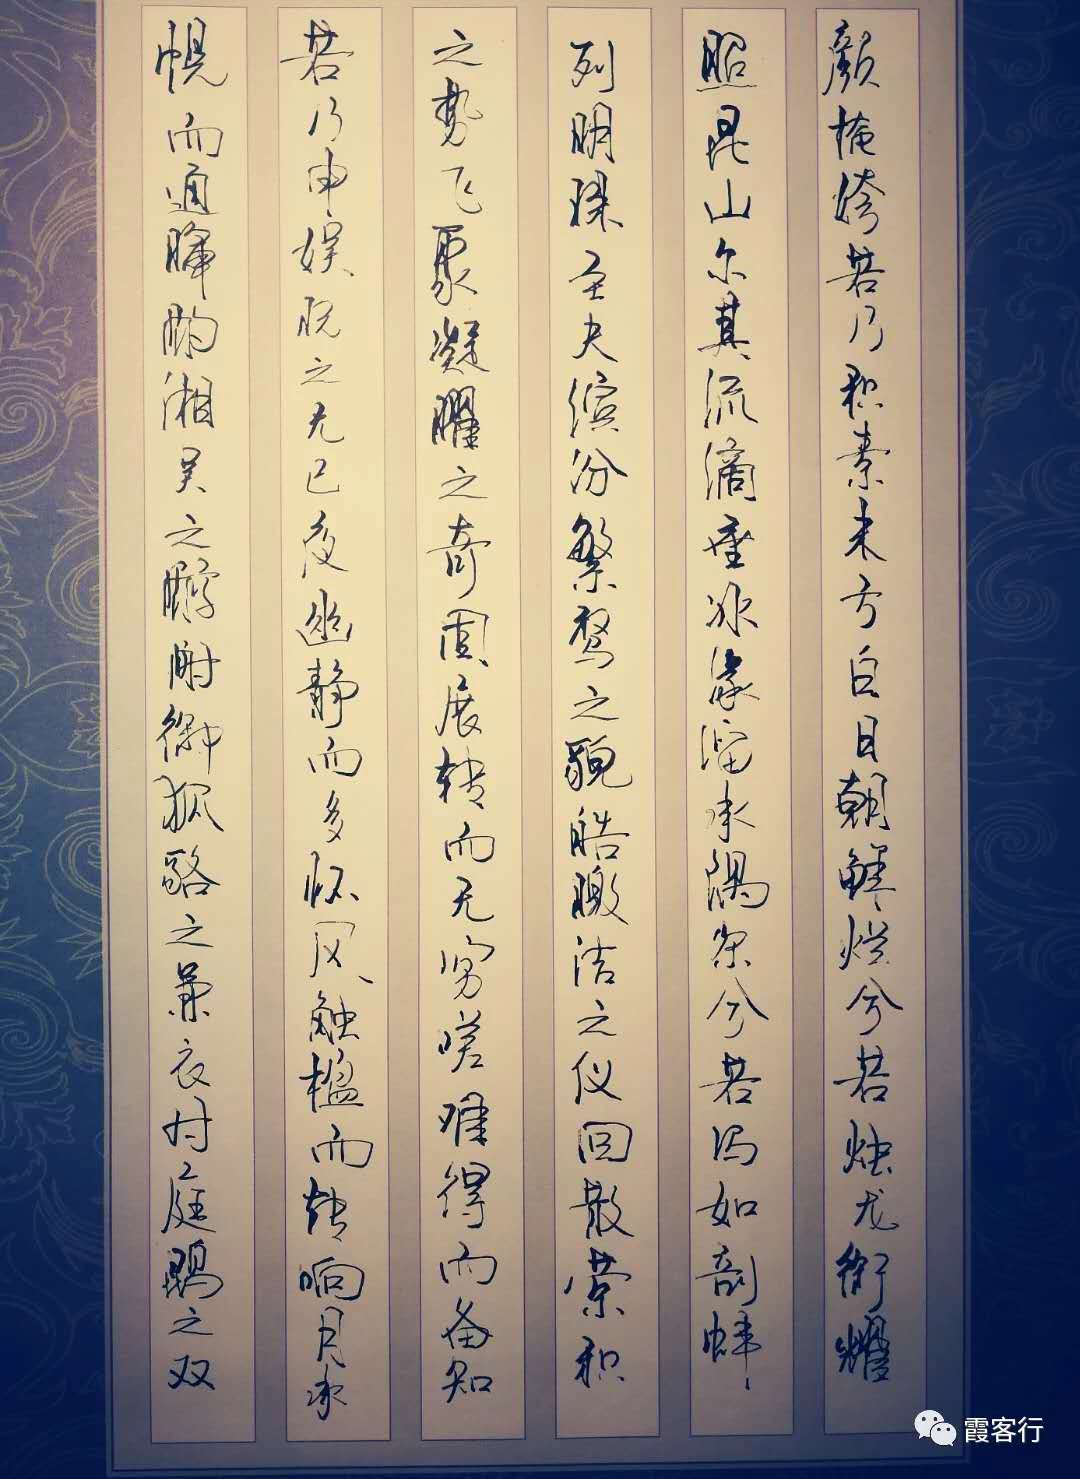 颜掩姱若乃积素未亏白日朝鲜烂兮若烛龙衔耀
照昆山尔其流滴垂冰缘溜承隅粲兮若冯如剖蚌
列明珠至夫缤纷繁骛之貌皓曒洁之仪回散萦积
之势飞聚凝曜之奇固展转而无穷嗟难得而备知
若乃申娱玩之无已夜幽静而多怀风触楹而转响月承
幌而通晖酌湘吴之醇酎御狐貉之兼衣对庭鹍之双
霞客行